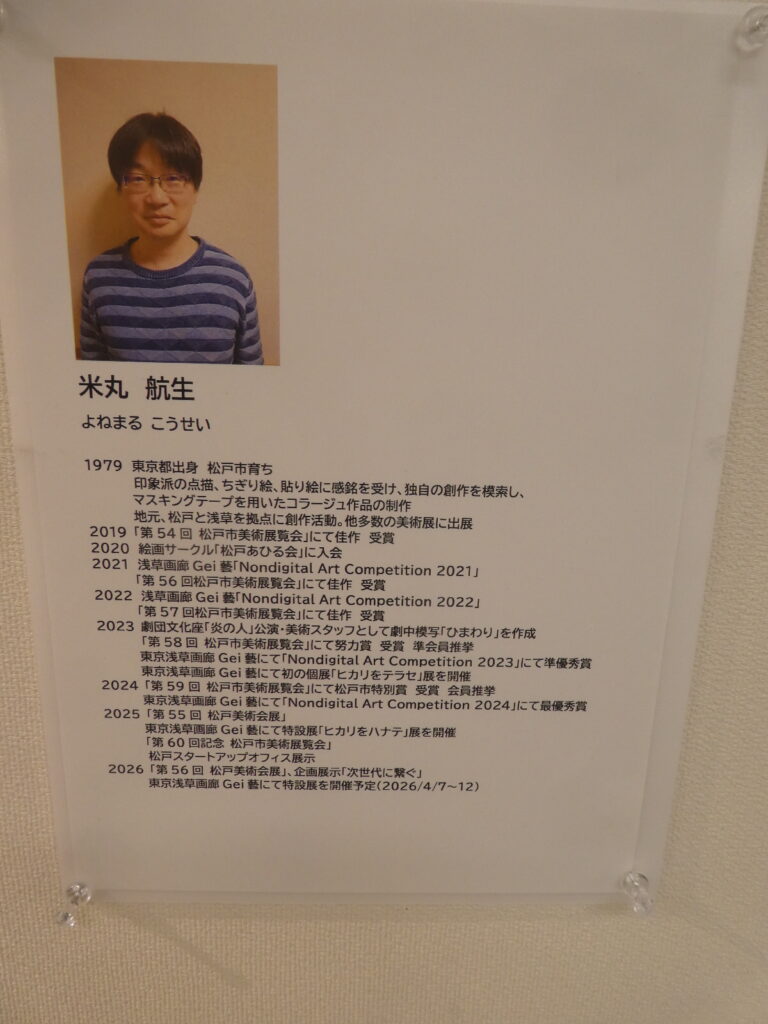 米丸 航生
よねまる こうせい
1979 東京都出身 松戸市育ち
印象派の点描、ちぎり絵、貼り絵に感銘を受け、独自の創作を模索し、
マスキングテープを用いたコラージュ作品の制作
地元、松戸と浅草を拠点に創作活動。他多数の美術展に出展
2019 「第54回 松戸市美術展覧会」にて佳作 受賞
2020 絵画サークル「松戸あひる会」に入会
2021 浅草画廊 Gei 藝「Nondigital Art Competition 2021」
「第56回松戸市美術展覧会」にて佳作 受賞
2022 浅草画廊 Gei 藝「Nondigital Art Competition 2022」
「第57回松戸市美術展覧会」にて佳作 受賞
2023 劇団文化座「炎の人」公演・美術スタッフとして劇中模写「ひまわり」を作成
「第58回 松戸市美術展覧会」にて努力賞 受賞 準会員推挙
東京浅草画廊 Gei 藝にて「Nondigital Art Competition 2023」にて準優秀賞
東京浅草画廊 Gei 藝にて初の個展「ヒカリをテラセ」展を開催
2024 「第59回 松戸市美術展覧会」にて松戸市特別賞 受賞 会員推挙
東京浅草画廊 Gei 藝にて「Nondigital Art Competition 2024」にて最優秀賞
2025 「第55回 松戸美術会展」
東京浅草画廊 Gei 藝にて特設展「ヒカリをハナテ」展を開催
「第60回記念 松戸市美術展覧会」
松戸スタートアップオフィス展示
2026 「第56回 松戸美術会展」、企画展示「次世代に繋ぐ」
東京浅草画廊 Gei 藝にて特設展を開催予定(2026/4/7~12)